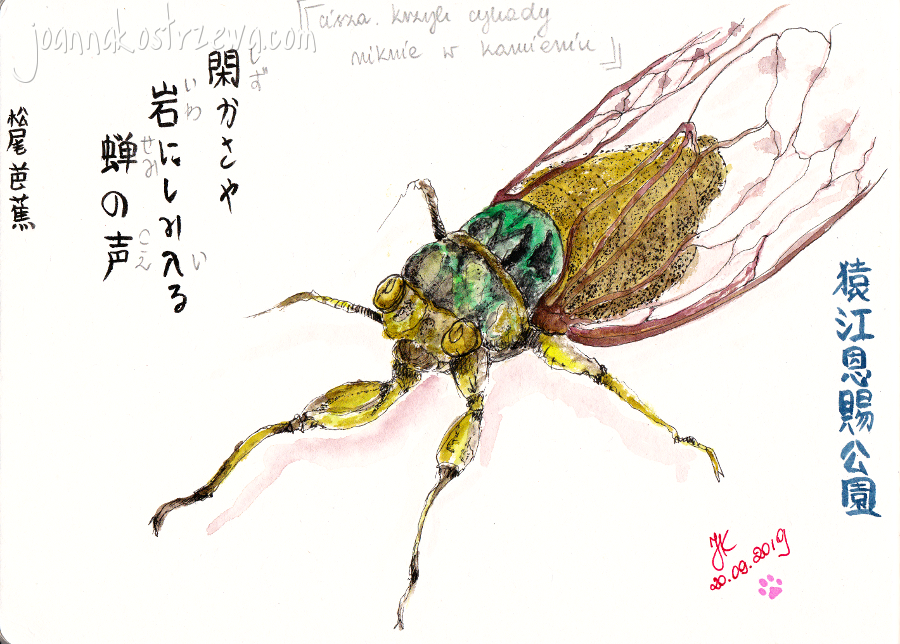 joannakostrzewa.com
「cisza. krzyk cykady
niknie w kamieniu」
閑かさや
しず
岩にしみ入る
いわ
い
蝉の声
せみ
こえ
松尾芭蕉
猿江恩賜公園
JK
20.09.2019